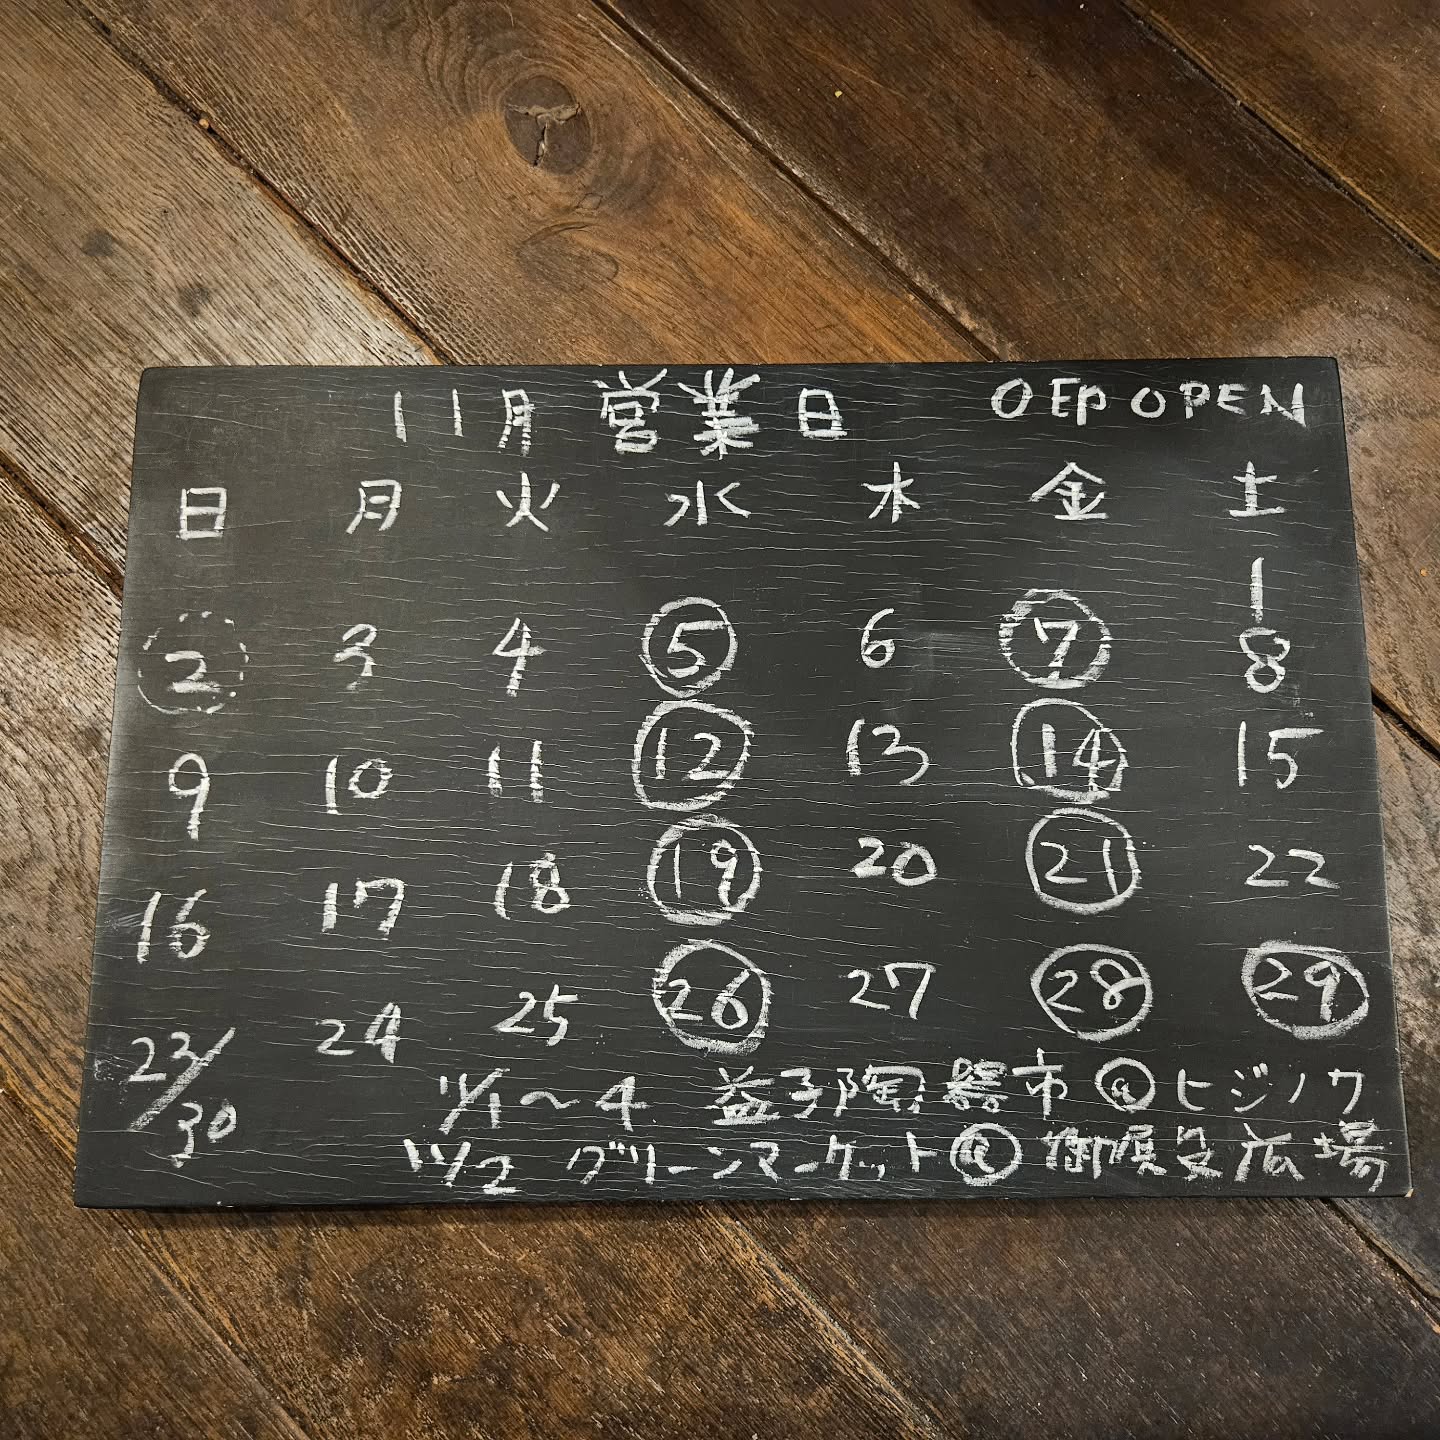 11月 営業日 〇印 OPEN
日 月 火 水 木 金 土
1
2 3 4 5 6 7 8
9 10 11 12 13 14 15
16 17 18 19 20 21 22
23/30 24 25 26 27 28 29
11/1〜4 益子陶器市@ヒジノワ
11/2 グリーンマーケット@ 広場